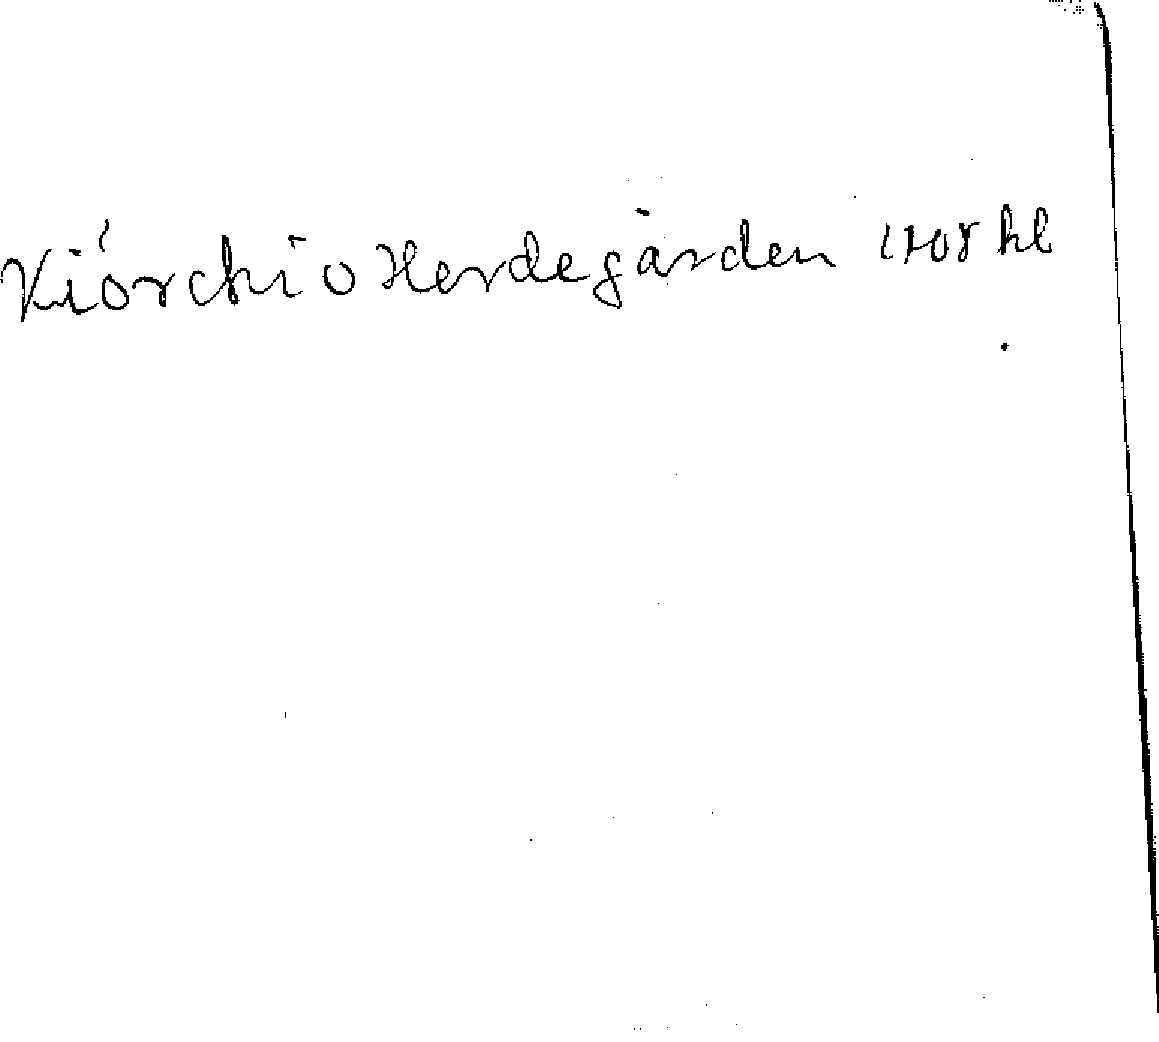 Kiörchi o Herdegården 1708 hl